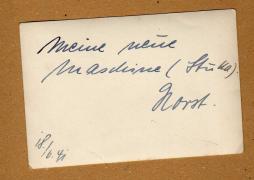 Meine neue
Maschine (Stuka).
Horst.
18/6.41